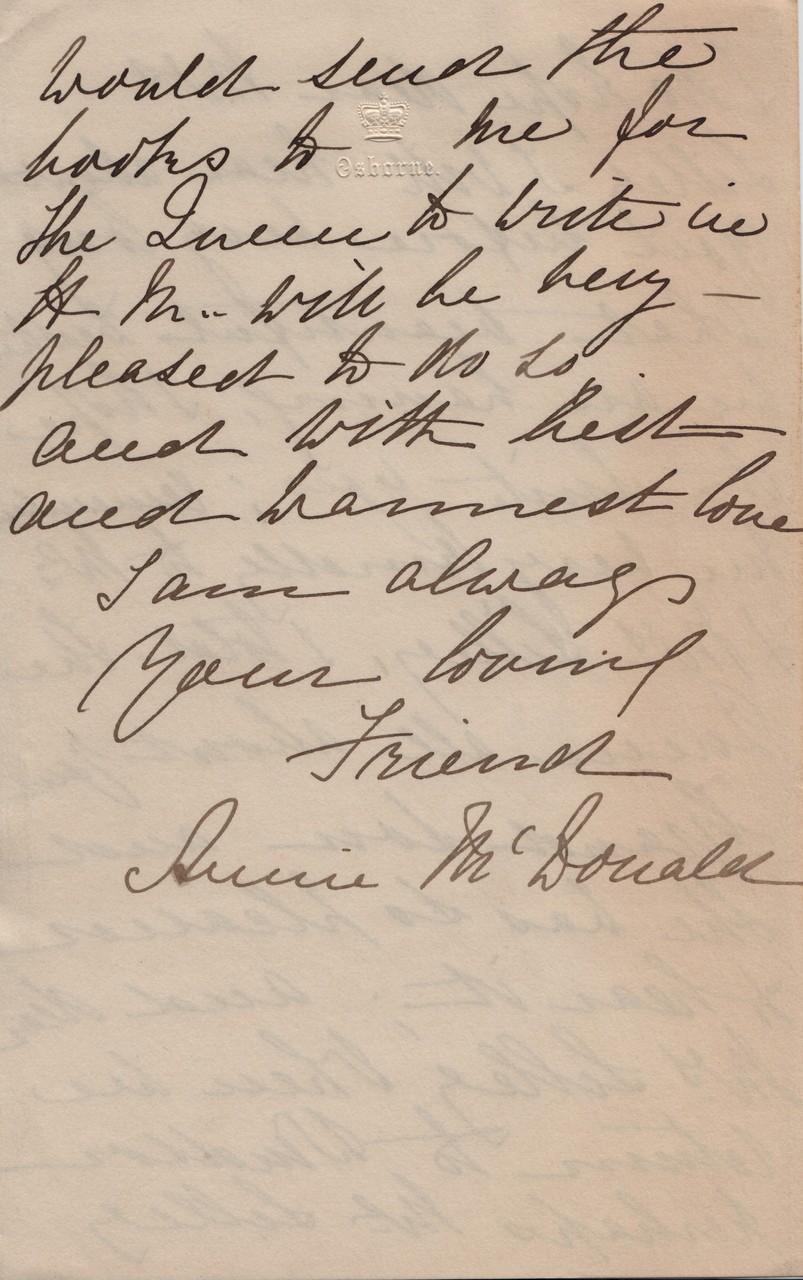 would send the
books to me for
Osborne.
the Queen to write in
H M.. will be very —
pleased to do so.
and with best
and warmest love
I am always
Your loving
Friend
Annie McDonald